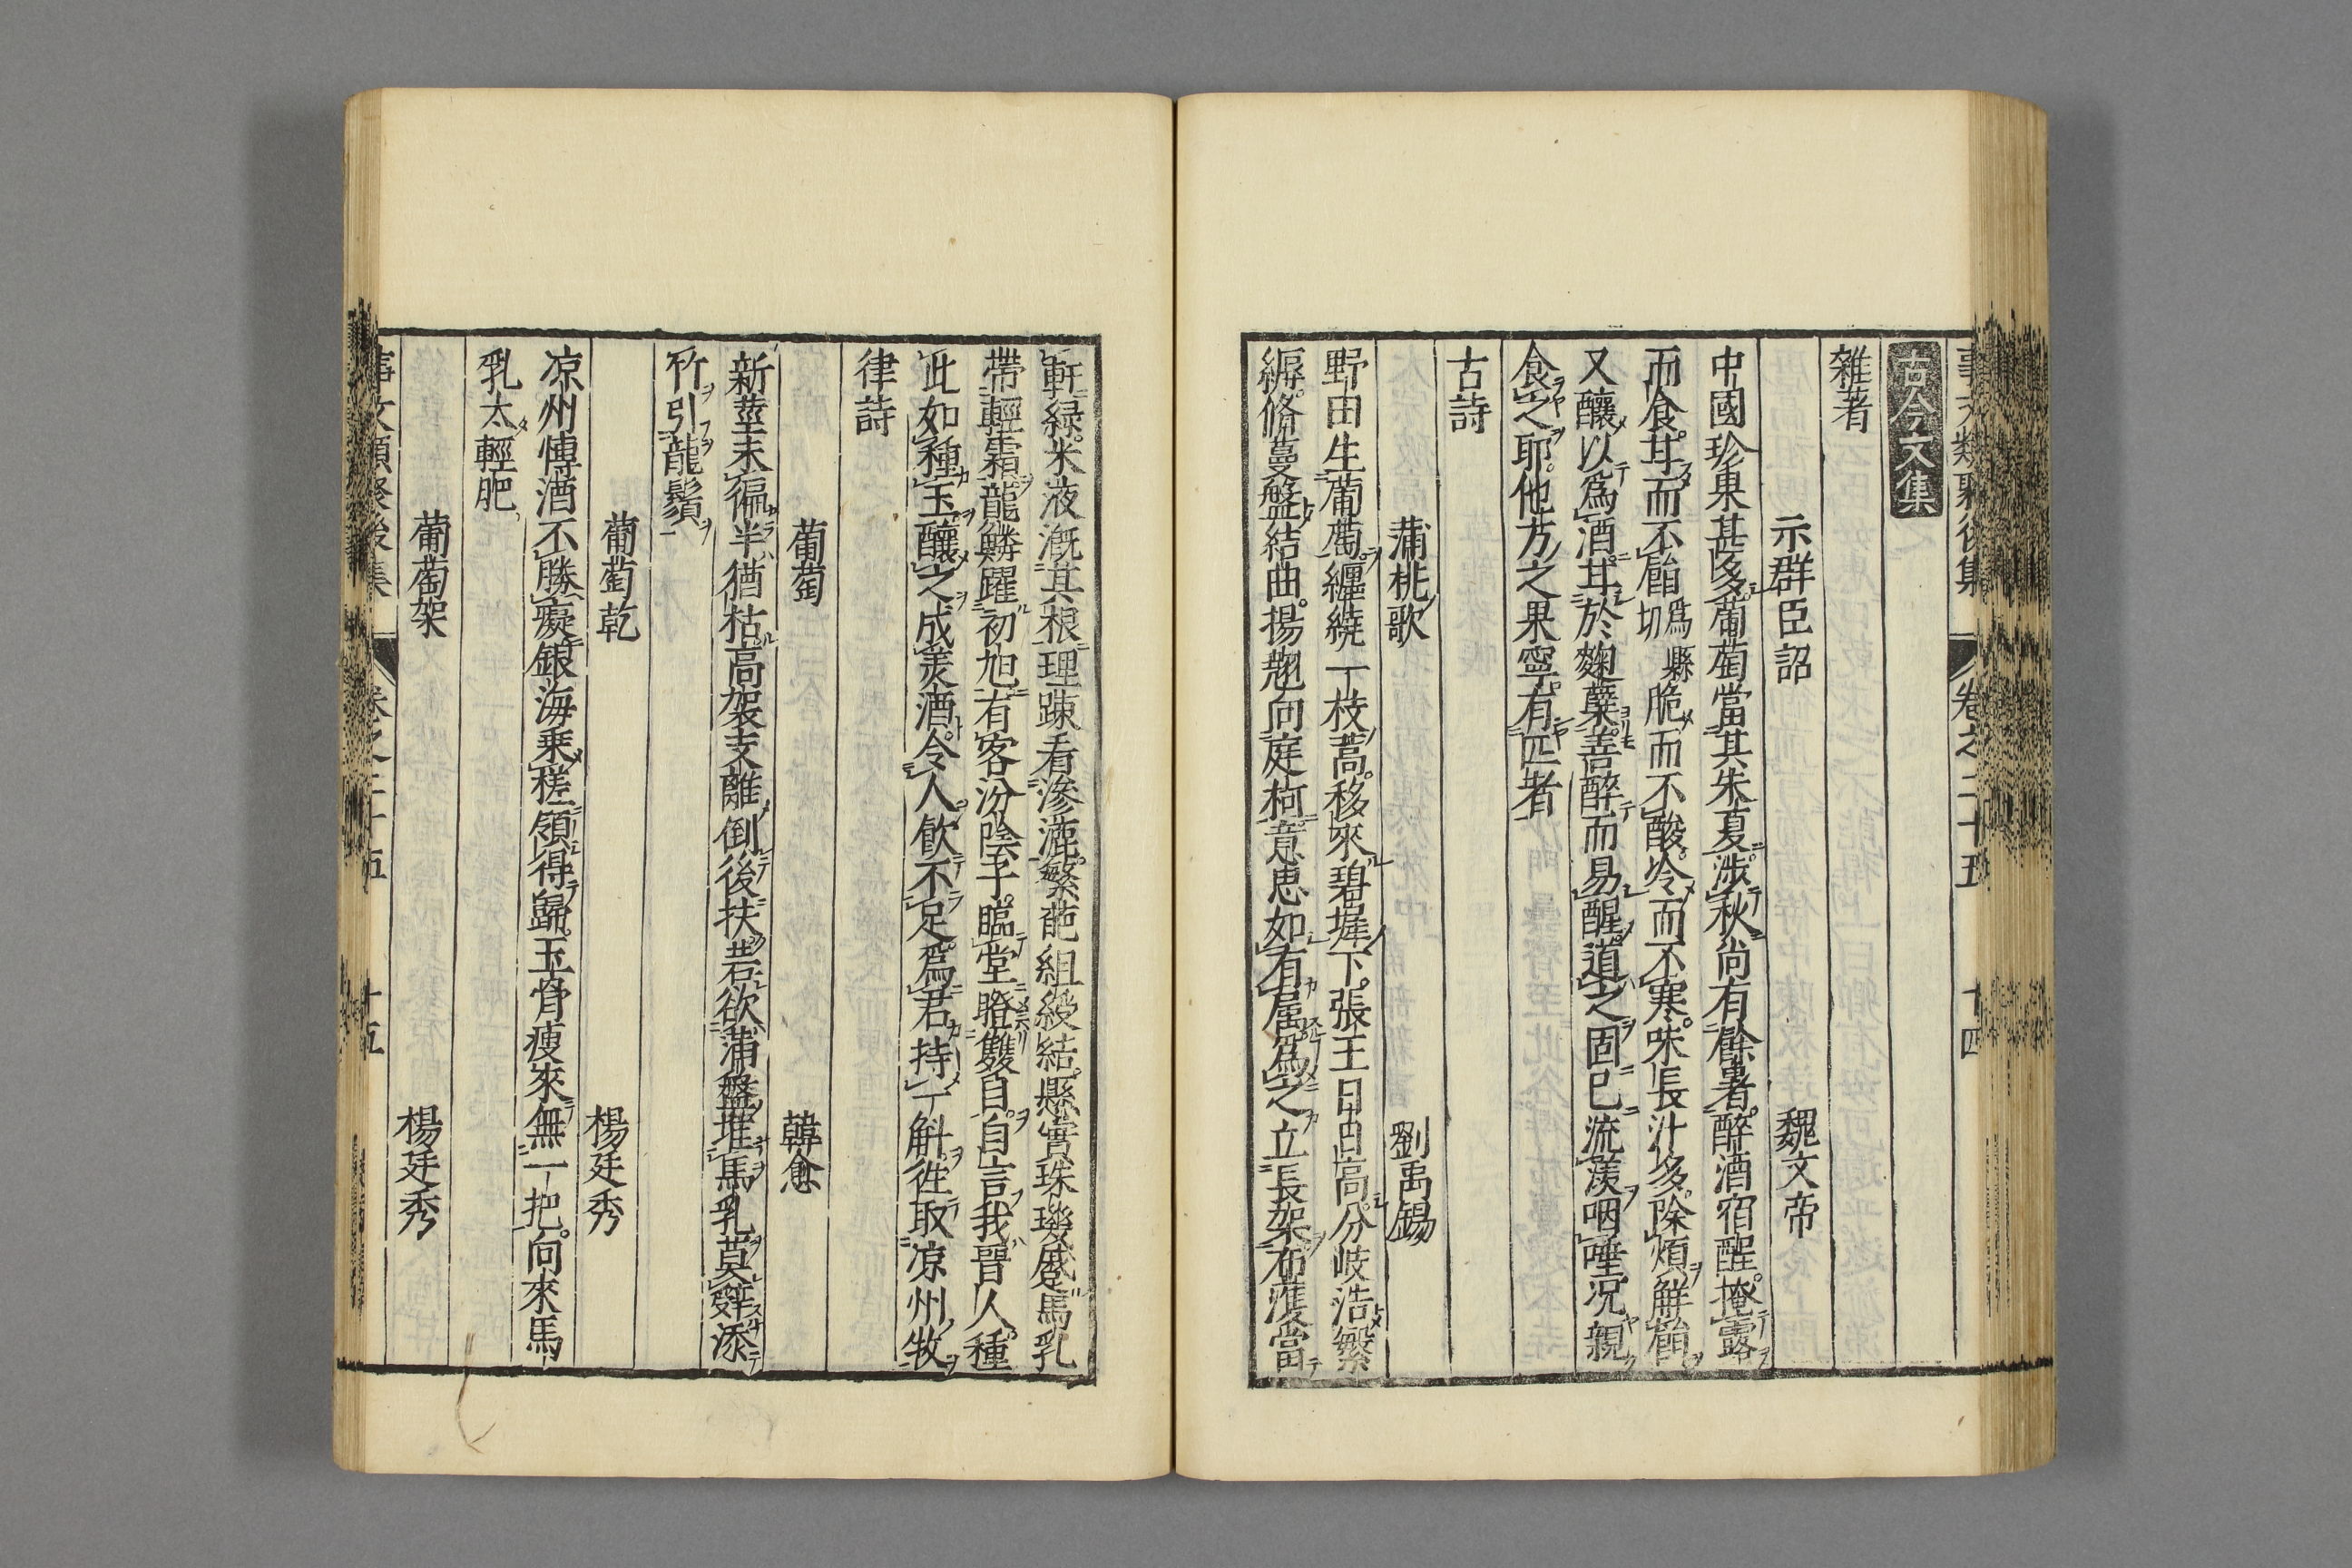 事文類聚後集 卷之二十五 十四
古今文集
雜著
示群臣詔 魏文帝
中國珍果甚多葡萄當其朱夏涉秋尚有餘暑醉酒宿醒掩露
而食耳而不䬵 爲縣切 脆而不酸冷而不寒味長汁多除煩解䬵
又釀以爲酒耳於麹糵善醉而易醒道之固已流羨咽唾况親
食之耶他方之果寧有匹者
古詩
蒲桃歌 劉禹錫
野田生葡萄纏繞一枝蒿移來碧墀下張王日日高分岐浩繁
縟脩蔓盤結曲揚翹向庭柯意思如有属爲之立長架布濩當
軒緑米液漑其根理踈看滲漉繁葩組綬結懸實珠璣蹙馬乳
帶輕霜龍鱗躍初旭有客汾陰子臨堂瞪雙目自言我晋人種
此如種玉釀之成美酒令人飲不足爲君持一斛徃取凉州牧
律詩
葡萄 韓愈
新莖未徧半猶枯高架支離倒後扶若欲滿盤堆馬乳莫辤添
竹引龍鬚
葡萄乾 楊廷秀
凉州慱酒不勝癡銀海乗槎領得歸玉骨瘦來無一把向來馬
乳太輕肥
葡萄架 楊廷秀
事文類聚後集 卷之二十五 十五